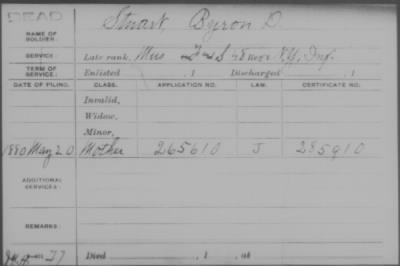 DEAD
NAME OF SOLDIER: Stuart, Byron D.
SERVICE: Late rank, Mus F & S 48 NCOS N.Y. Inf.
TERM OF SERVICE: Enlisted , 1 Discharged , 1
DATE OF FILING. CLASS. APPLICATION NO. LAW. CERTIFICATE NO.
Invalid,
Widow,
Minor,
1880 May 20 Mother 265610 J 285910
ADDITIONAL SERVICES:
REMARKS:
Died , 1 , at